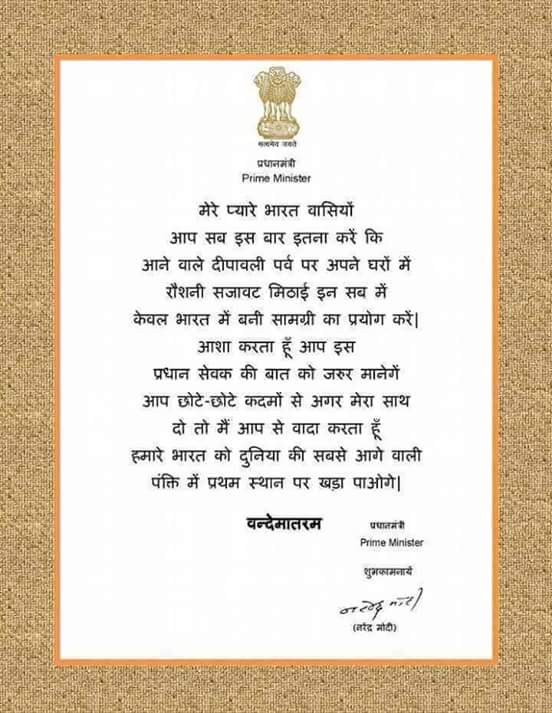 सत्यमेव जयते
प्रधानमंत्री
Prime Minister
मेरे प्यारे भारत वासियों
आप सब इस बार इतना करें कि
आने वाले दीपावली पर्व पर अपने घरों में
रौशनी सजावट मिठाई इन सब में
केवल भारत में बनी सामग्री का प्रयोग करें|
आशा करता हूँ आप इस
प्रधान सेवक की बात को जरुर मानेगें
आप छोटे-छोटे कदमों से अगर मेरा साथ
दो तो मैं आप से वादा करता हूँ
हमारे भारत को दुनिया की सबसे आगे वाली
पंक्ति में प्रथम स्थान पर खड़ा पाओगे|
वन्देमातरम
प्रधानमंत्री
Prime Minister
शुभकामनायें
नरेन्द्र मोदी
(नरेंद्र मोदी)